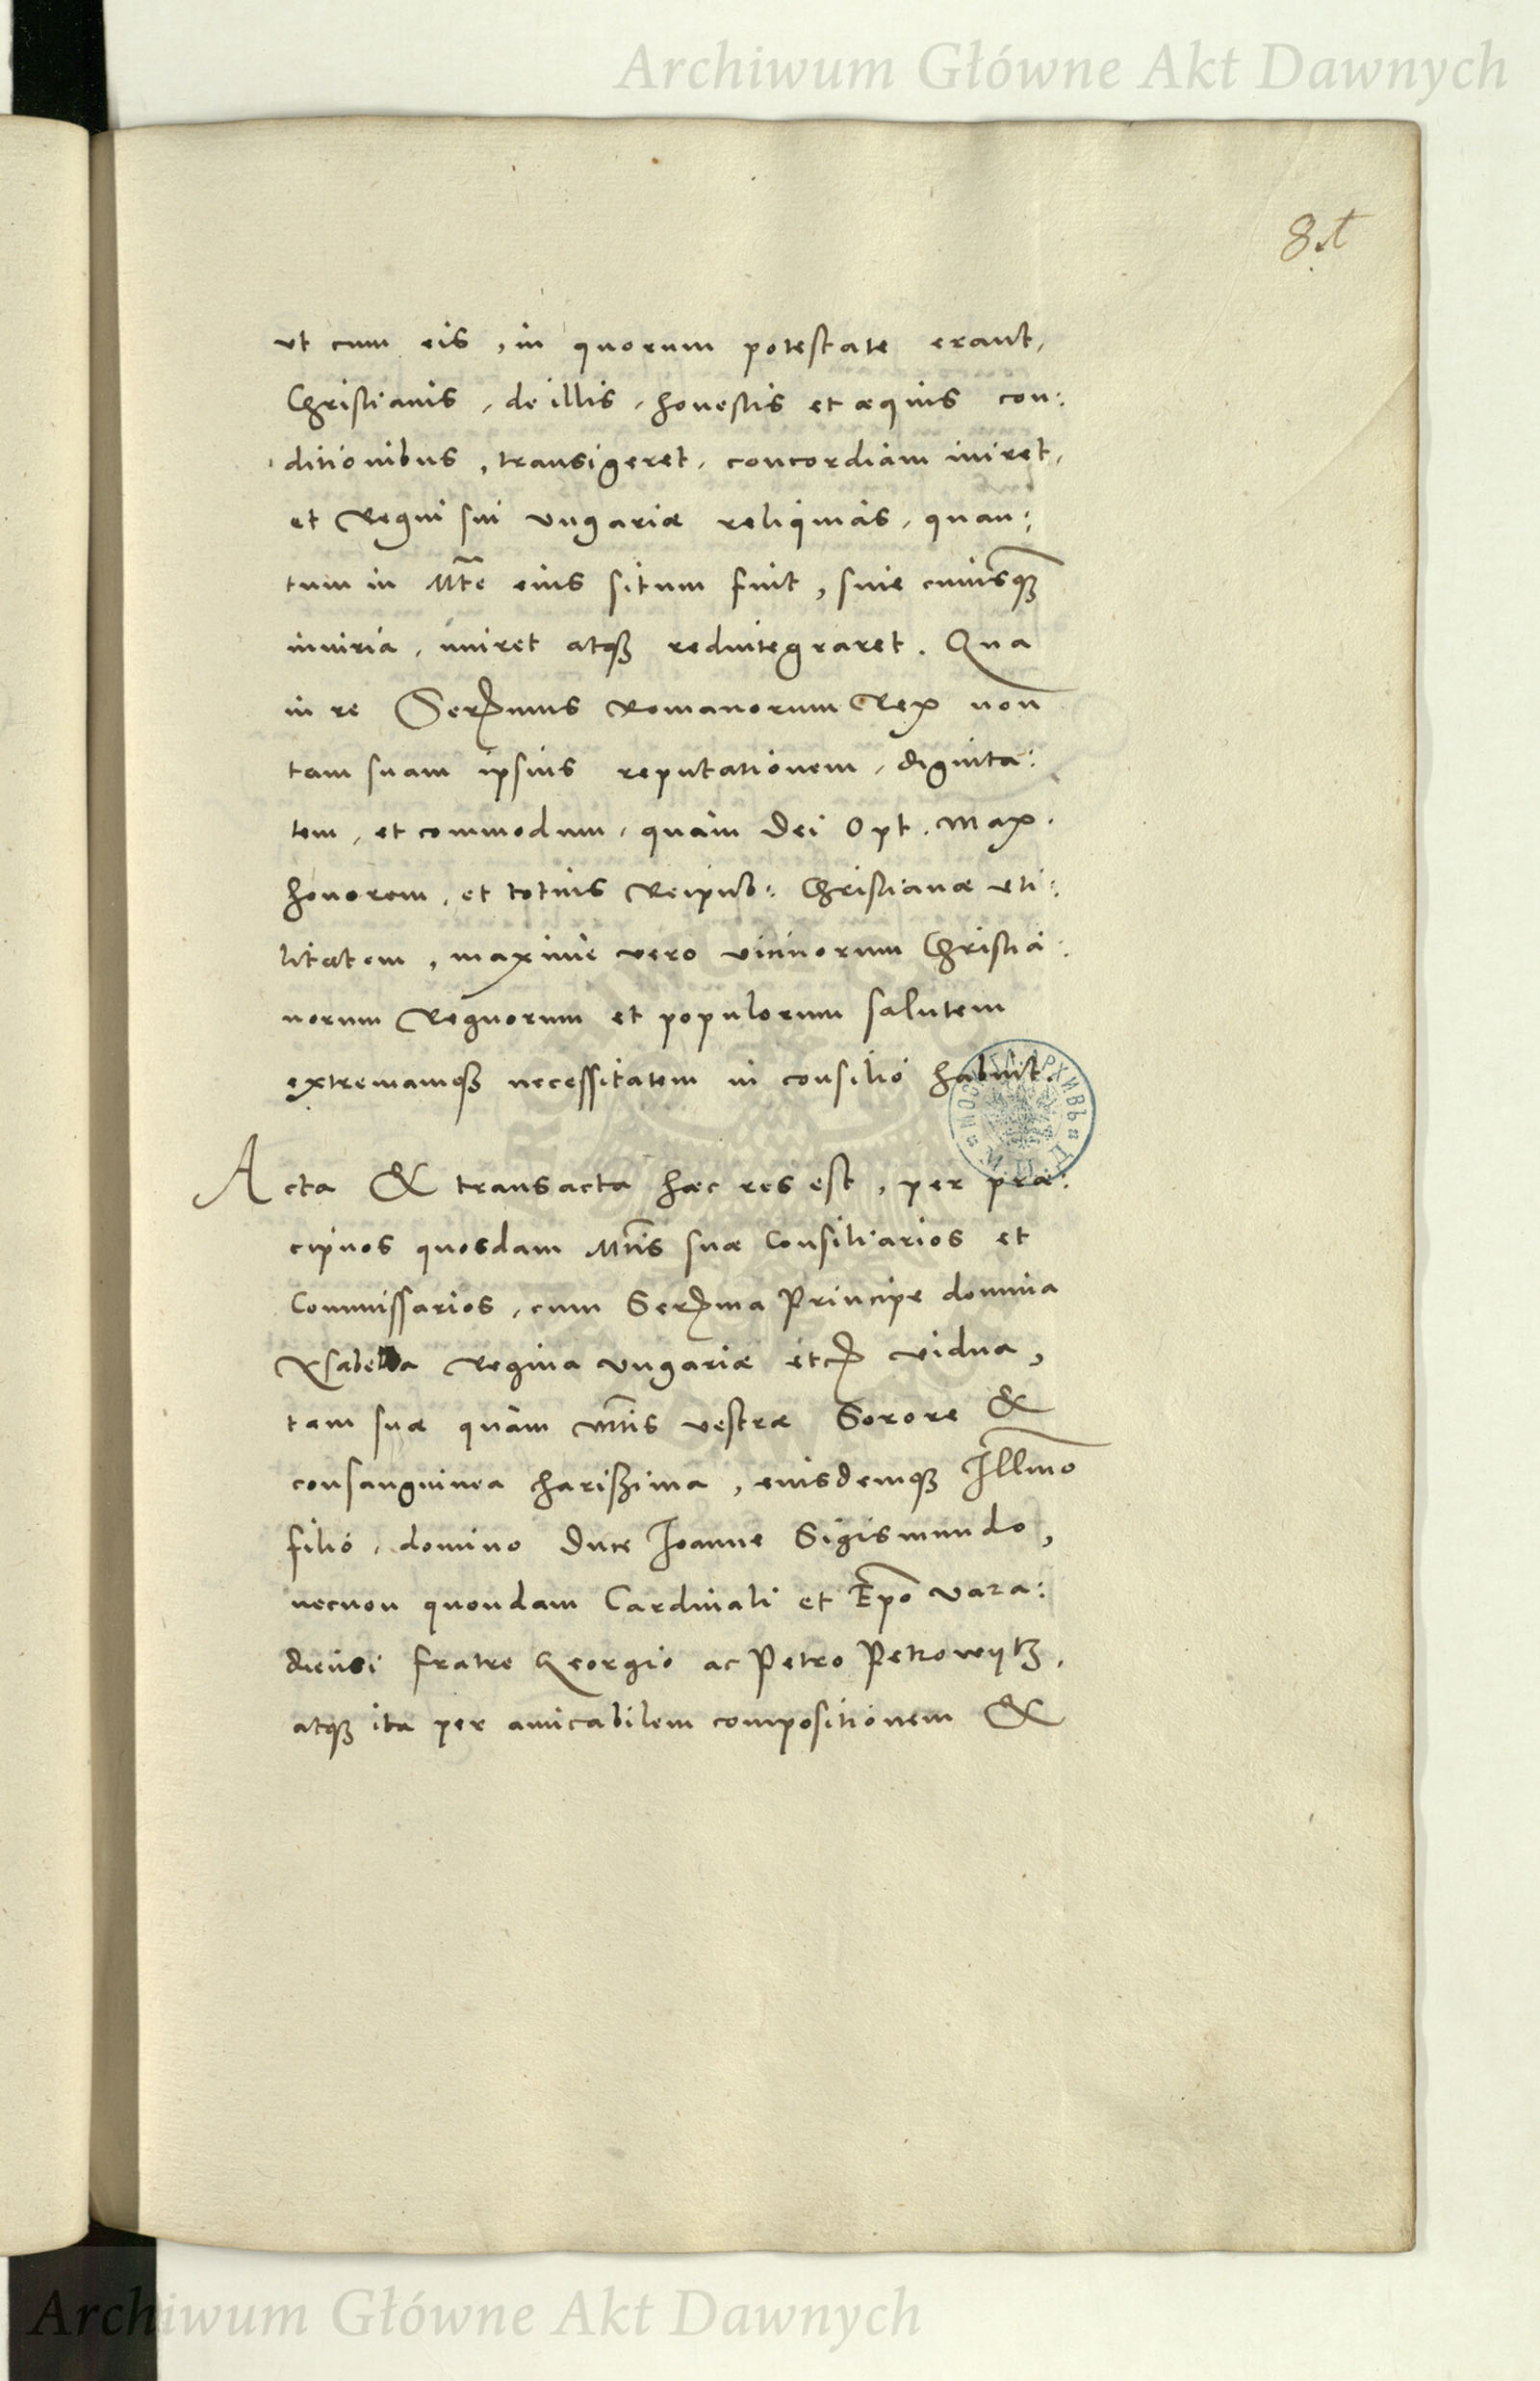 Archiwum Główne Akt Dawnych
ut cum eis, in quorum potestate erant,
Christianis, de illis, honestis et æquis con:
ditionibus, transigeret, concordiam iniret,
et Regni sui Ungariæ reliquias, quan:
tum in Mte eius situm fuit, sine cuiusq3
iniuria, uniret atq3 redintegraret. Qua
in re Sermus Romanorum Rex non
tam suam ipsius reputationem, dignita:
tem, et commodum, quàm Dei Opt. Max.
honorem, et totius Reipub: Christianæ uti:
litatem, maxime vero vicinorum Christia:
norum Regnorum et populorum salutem
extremamq3 necessitatem in consilio habuit.
Acta & transacta hæc res est, per præ:
cipuos quosdam Mtis suæ Consiliarios et
Commissarios, cum Serma Principe domina
Ysabella Regina Ungariæ etc vidua,
tam suæ quàm Mtis vestræ Sorore &
consanguinea charißima, eiusdemq3 Illmo
filio, domino Duce Joanne Sigismundo,
necnon quondam Cardinali et Epo Vara:
diensi fratre Georgio ac Petro Petrowytz,
atq3 ita per amicabilem compositionem &
Archiwum Główne Akt Dawnych